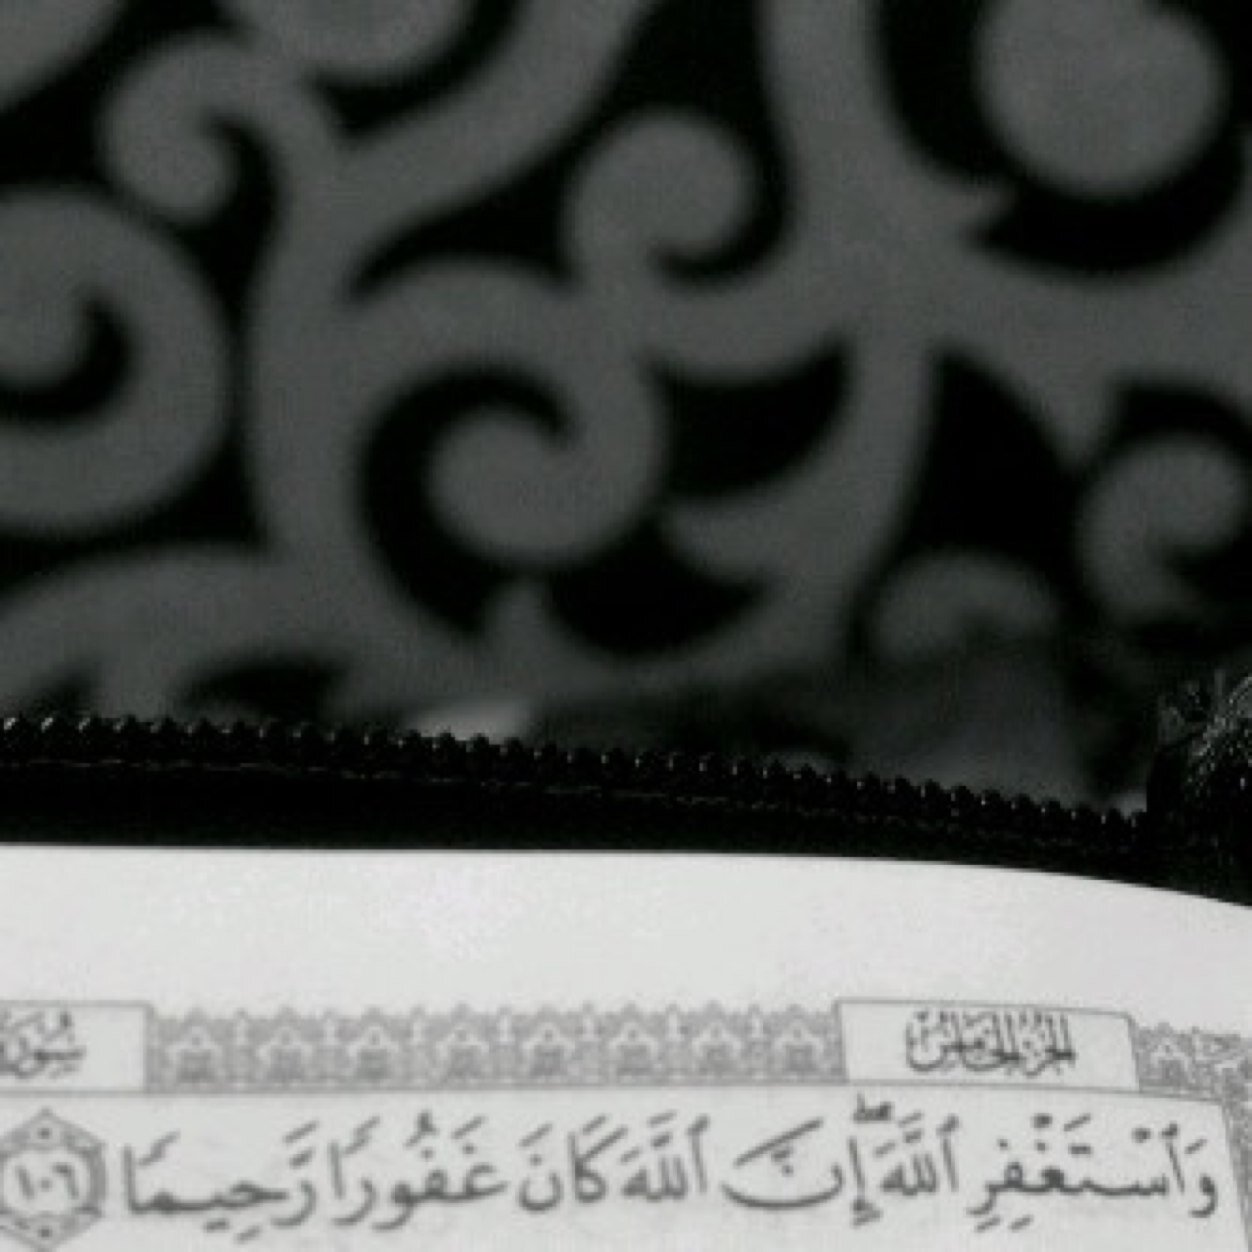 الجزء الخامس
سورة
وَٱسْتَغْفِرِ ٱللَّهَ ۖ إِنَّ ٱللَّهَ كَانَ غَفُورًا رَّحِيمًا ١٠٦